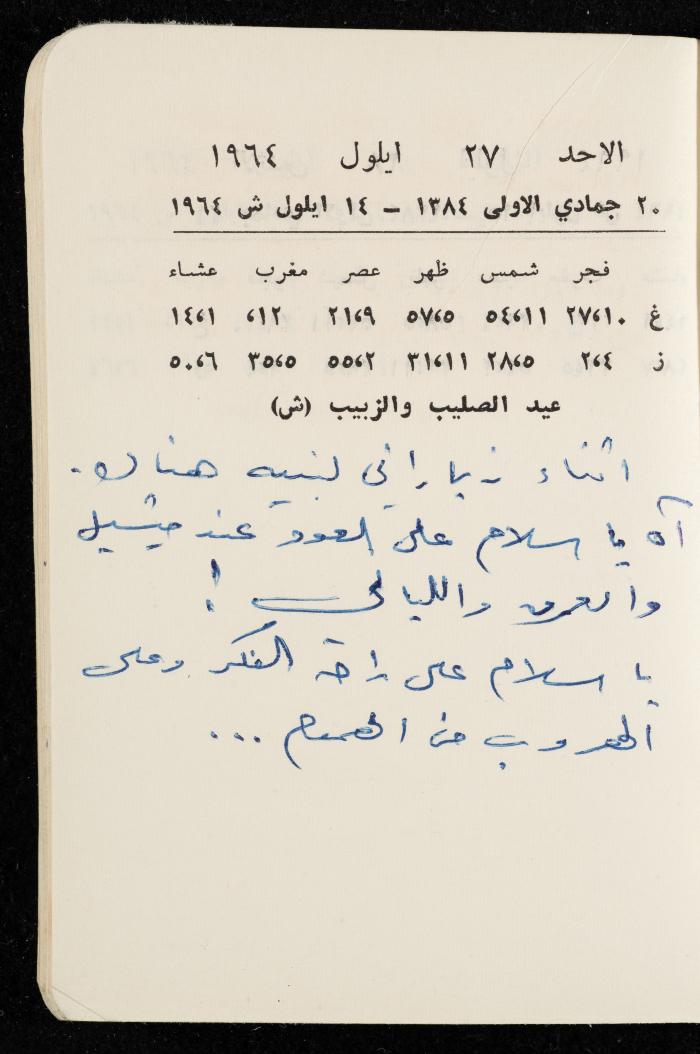 الاحد ٢٧ ايلول ١٩٦٤
٢٠ جمادي الاولى ١٣٨٤ – ١٤ ايلول ش ١٩٦٤
فجر شمس ظهر عصر مغرب عشاء
غ ١٠،٢٧ ١١،٥٤ ٥،٥٧ ٩،٢١ ١٢، ١،١٤
ز ٤،٢ ٥،٢٨ ١١،٣١ ٢،٥٥ ٥،٣٥ ٦،٥٠
عيد الصليب والزبيب (ش)
اثناء زياراتي لبنيه هناك.
آه يا سلام على العود عند ميشيل
والعرق والليالي !
يا سلام على راحة الفكر وعلى
الهروب من الهموم ...